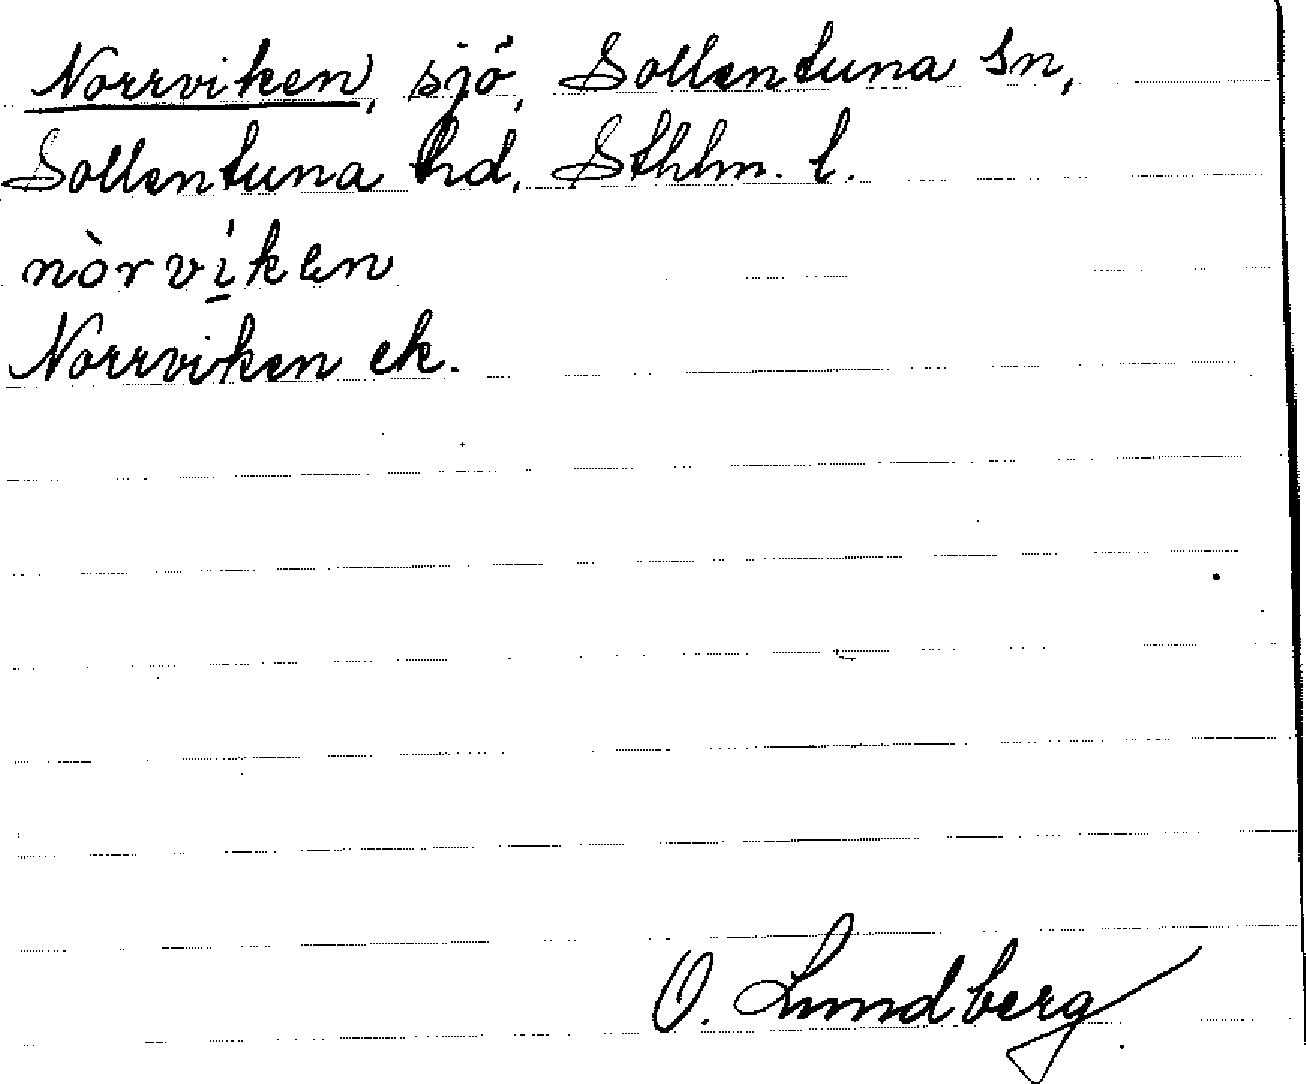 Norrviken, sjö, Sollentuna sn,
Sollentuna hd, Sthlm. l.
nòrvi̱ken
Norrviken ek.
O. Lundberg